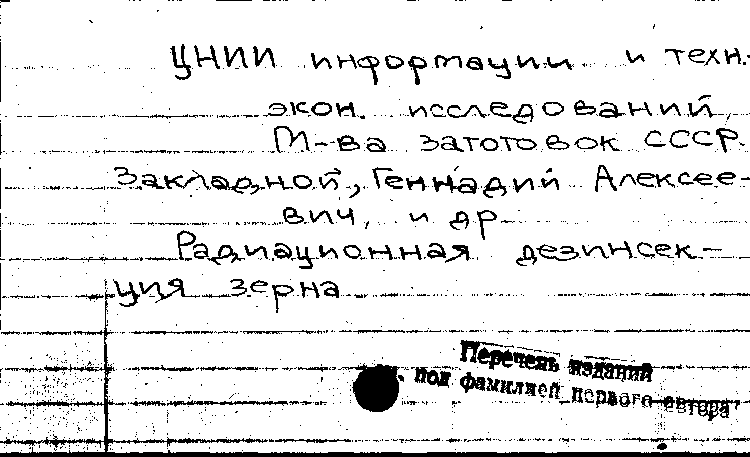 ЦНИИ информации и техн.-
экон. исследований
М-ва заготовок СССР.
Закладной, Геннадий Алексее-
вич, и др
Радиационная дезинсек-
ция зерна
Перечень изданий
под фамилией первого автора